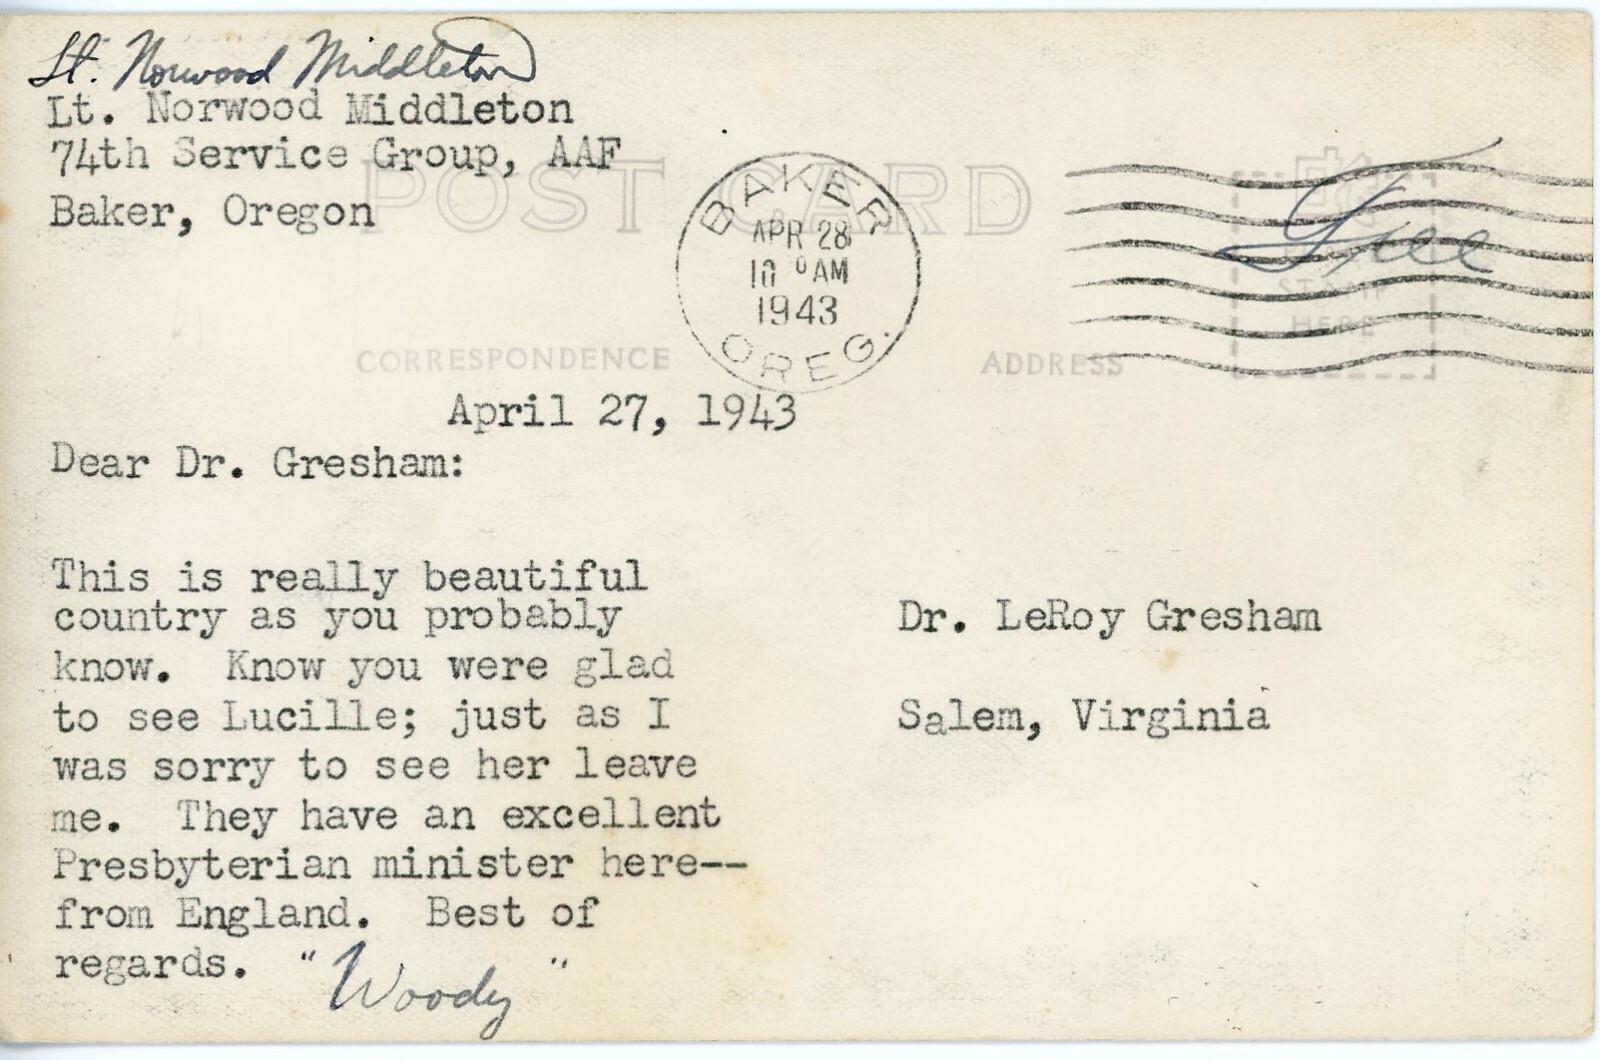 Lt. Norwood Middleton
Lt. Norwood Middleton
74th Service Group, AAF
Baker, Oregon
POST CARD
BAKER
APR 28
10 AM
1943
OREG.
Free
STAMP
HERE
CORRESPONDENCE
ADDRESS
April 27, 1943
Dear Dr. Gresham:
This is really beautiful
country as you probably
know. Know you were glad
to see Lucille; just as I
was sorry to see her leave
me. They have an excellent
Presbyterian minister here--
from England. Best of
regards. "Woody"
Dr. LeRoy Gresham
Salem, Virginia